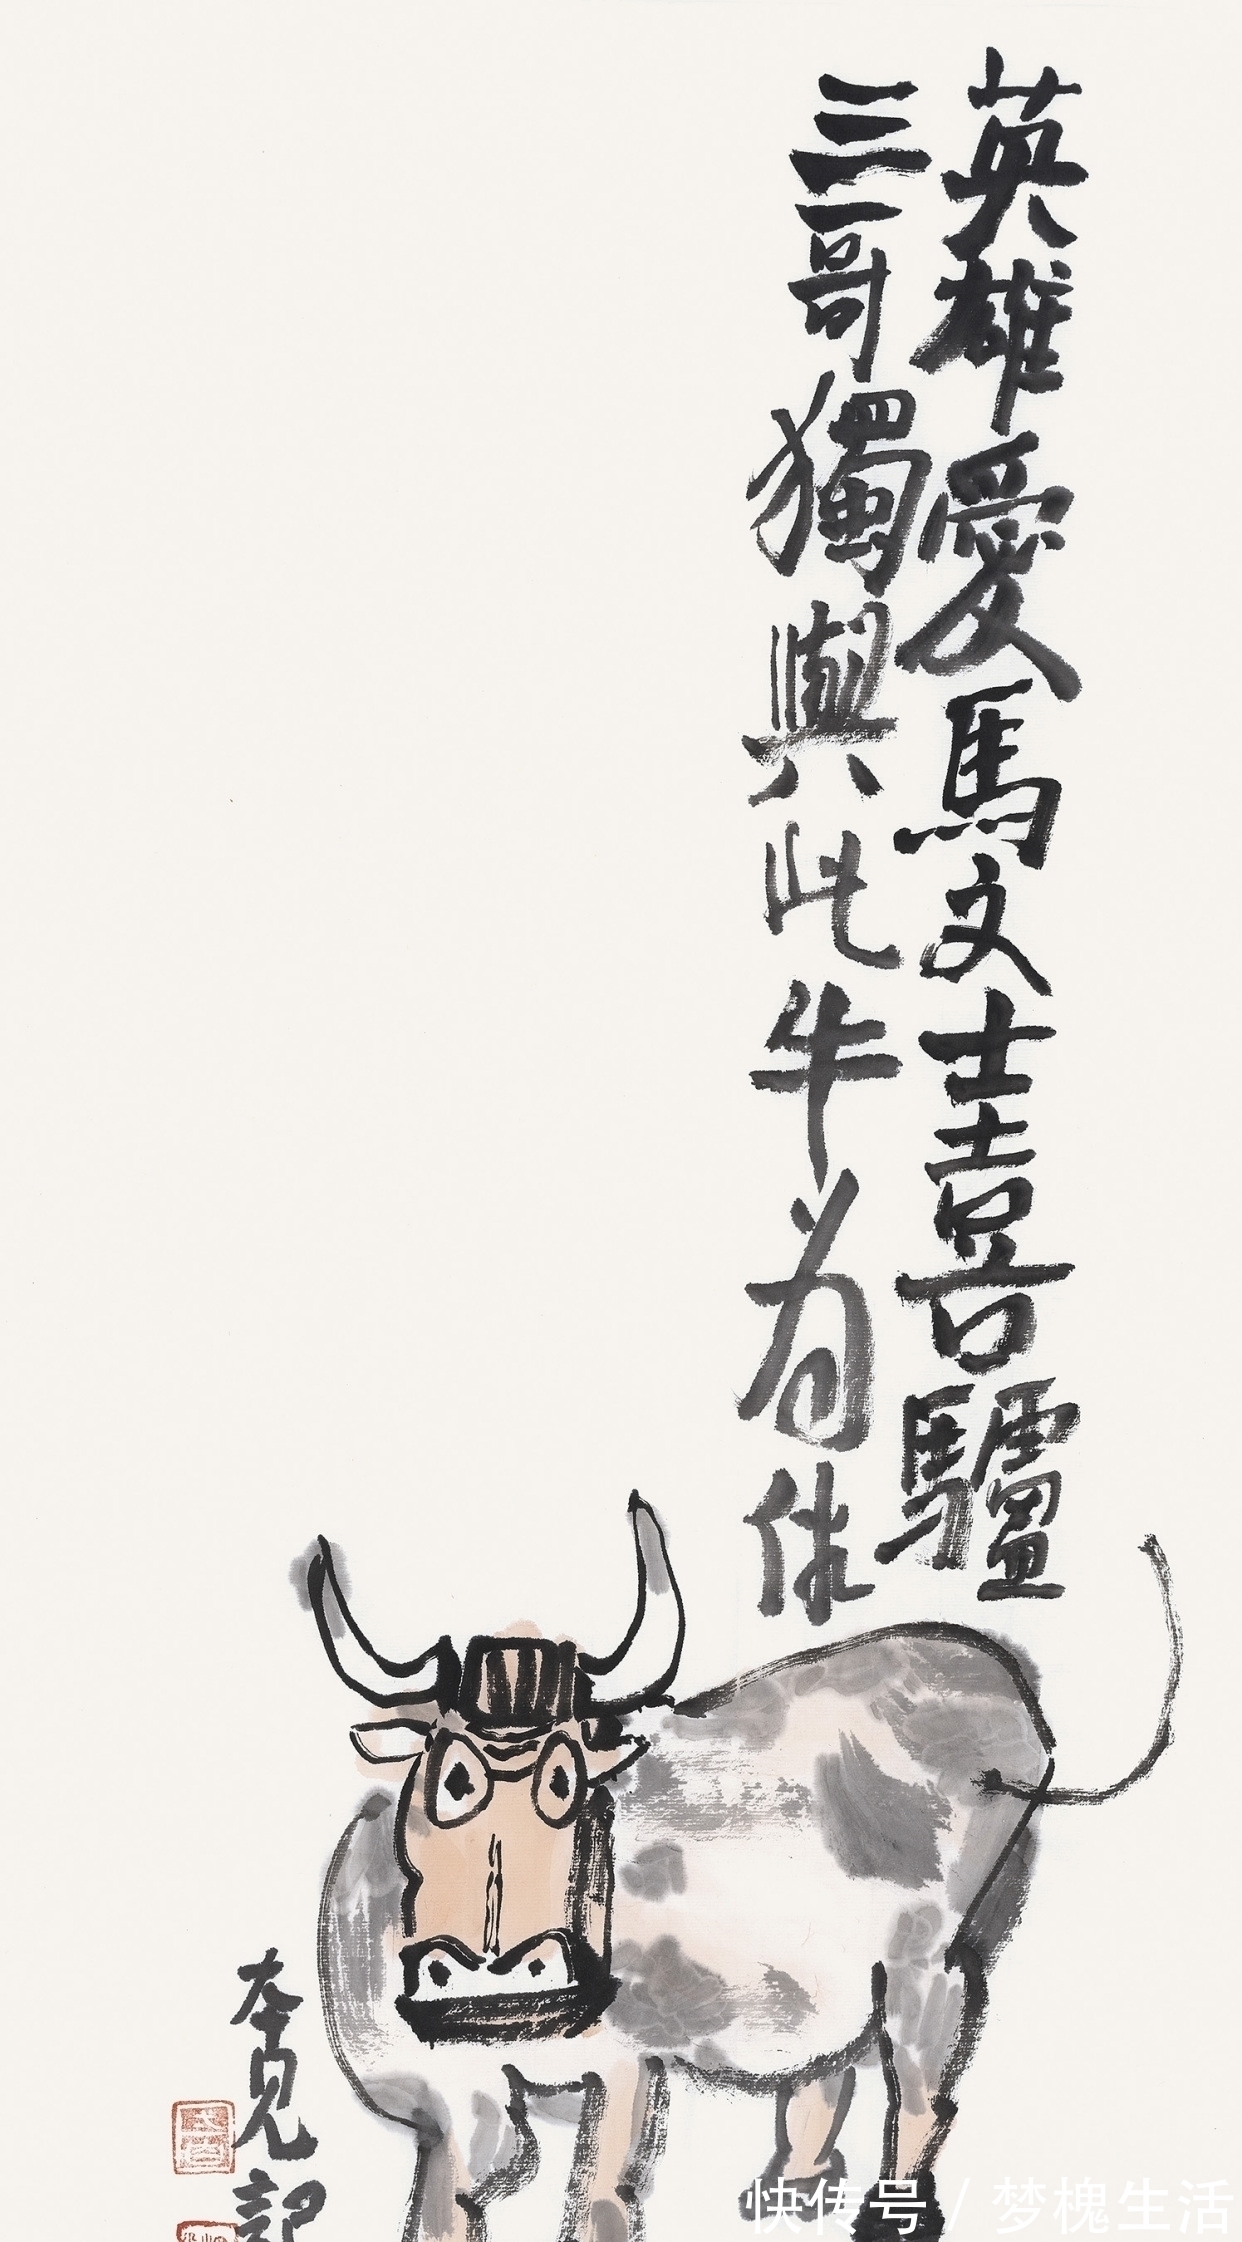 英雄愛馬文士喜驢
三哥獨與此牛為伴
本見記
快传号 / 梦槐生活